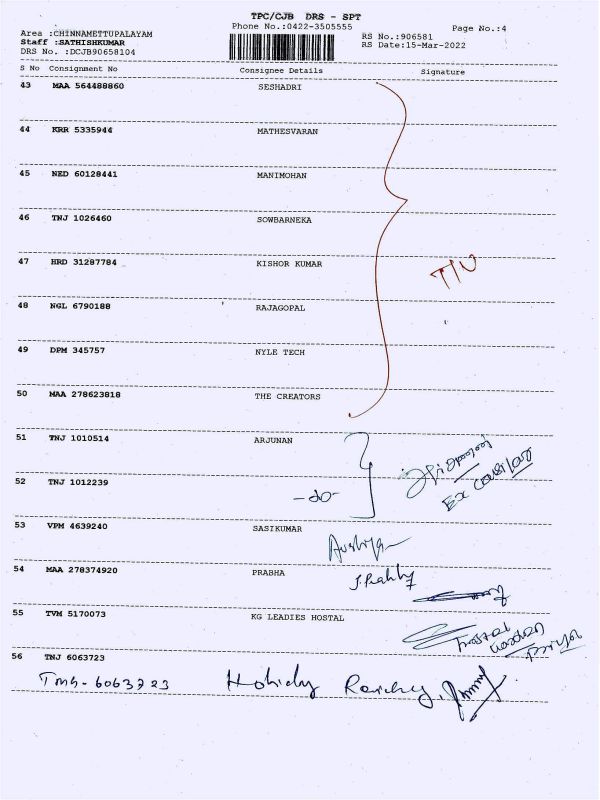 TPC/CJB DRS - SPT
Phone No.:0422-3505555
Page No.:4
Area :CHINNAMETTUPALAYAM
Staff :SATHISHKUMAR
DRS No. :DCJB90658104
RS No.:906581
RS Date:15-Mar-2022
S No Consignment No Consignee Details Signature
43 MAA 564488860 SESHADRI
44 KRR 5335944 MATHESVARAN
45 NED 60128441 MANIMOHAN
46 TNJ 1026460 SOWBARNEKA
47 HRD 31287784 KISHOR KUMAR
T/U
48 NGL 6790188 RAJAGOPAL
49 DPM 345757 NYLE TECH
50 MAA 278623818 THE CREATORS
51 TNJ 1010514 ARJUNAN
52 TNJ 1012239 -do-
53 VPM 4639240 SASIKUMAR
54 MAA 278374920 PRABHA
55 TVM 5170073 KG LEADIES HOSTAL
56 TNJ 6063723